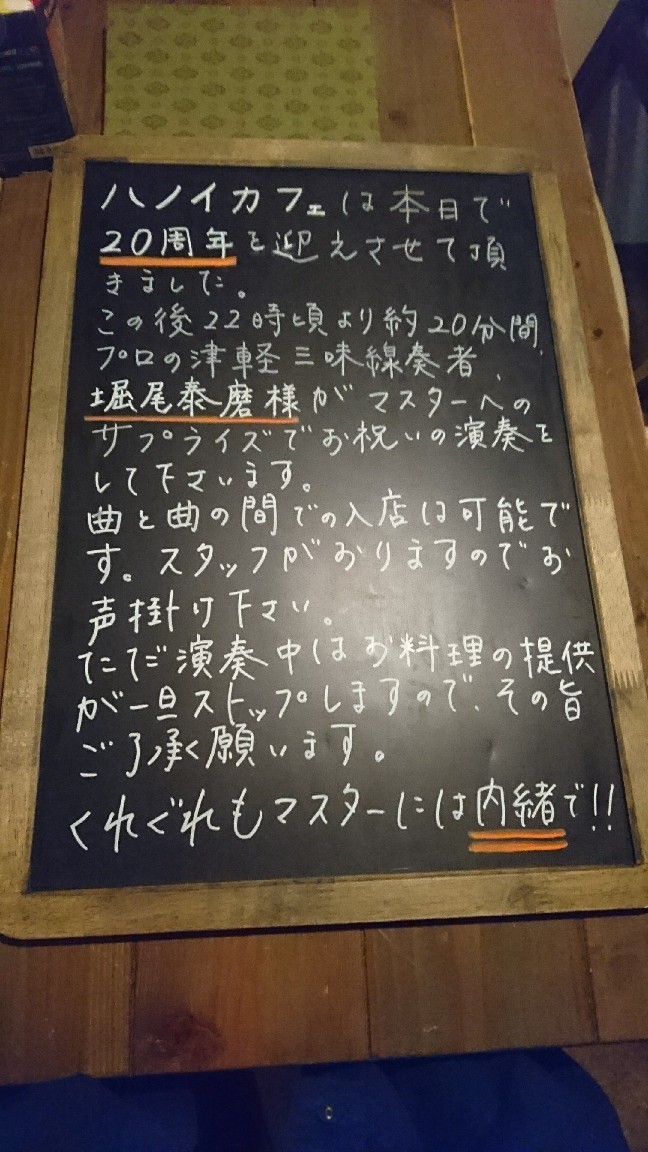 ハノイカフェは本日で
20周年を迎えさせて頂
きました。
この後22時頃より約20分間、
プロの津軽三味線奏者、
堀尾泰磨様がマスターへの
サプライズでお祝いの演奏を
して下さいます。
曲と曲の間での入店は可能で
す。スタッフがおりますのでお
声掛け下さい。
ただ演奏中はお料理の提供
が一旦ストップしますので、その旨
ご了承願います。
くれぐれもマスターには内緒で!!